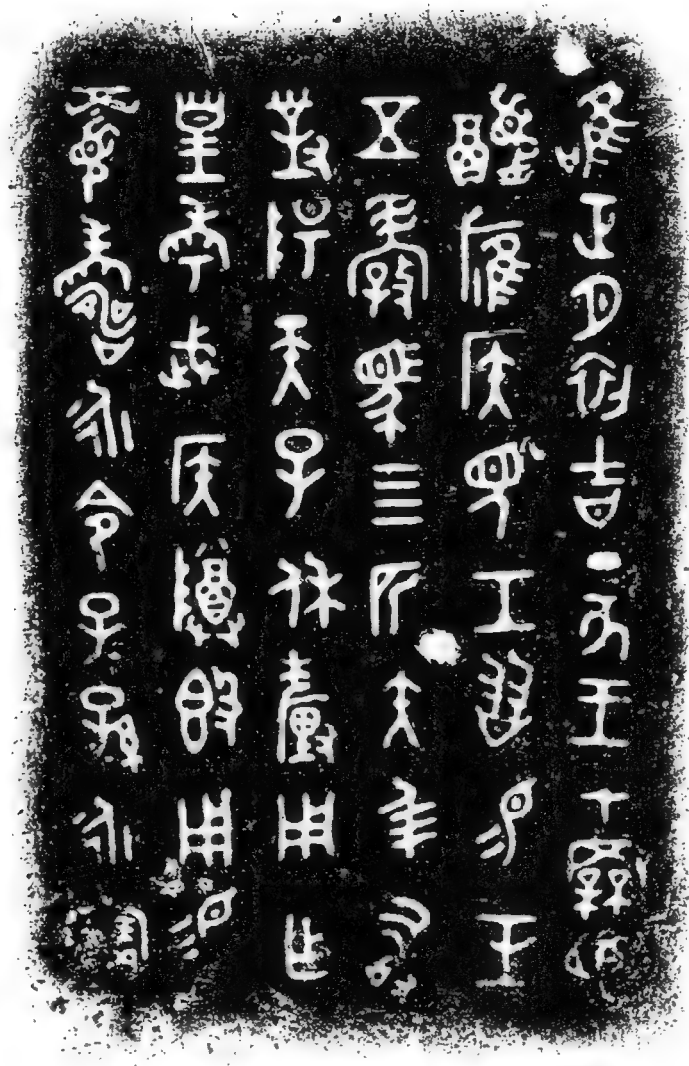 唯正月初吉丁亥王才鄉
醴雁侯見工友易玉
五瑴馬四匹矢三千敢
對揚天子休釐用乍
皇考武侯尊𣪘用易
眉壽永令子子孫孫永寶